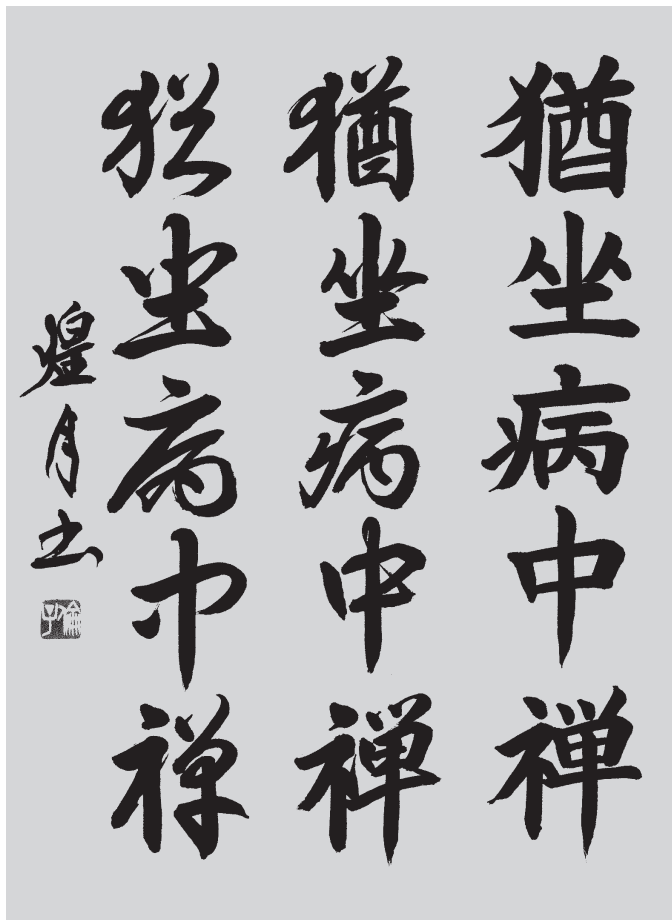 猶坐病中禅
猶坐病中禅
猶坐病中禅
煌月書